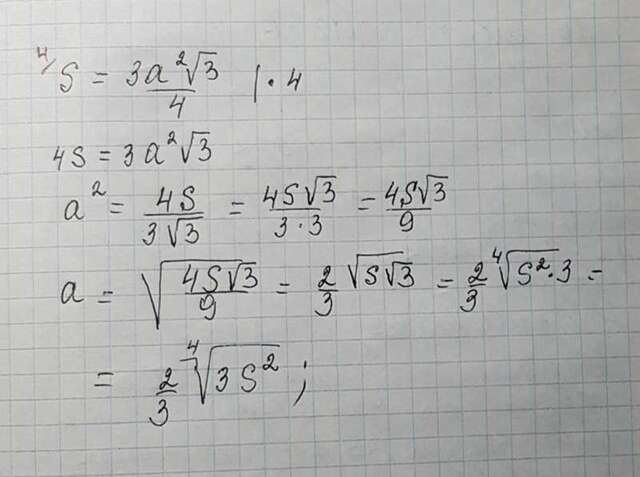 ⁴/ S = 3a²√3 / 4 | · 4
4S = 3a²√3
a² = 4S / 3√3 = 4S√3 / 3·3 = 4S√3 / 9
a = √(4S√3 / 9) = 2/3 √(S√3) = 2/3 ⁴√(S²·3) =
= 2/3 ⁴√(3S²) ;